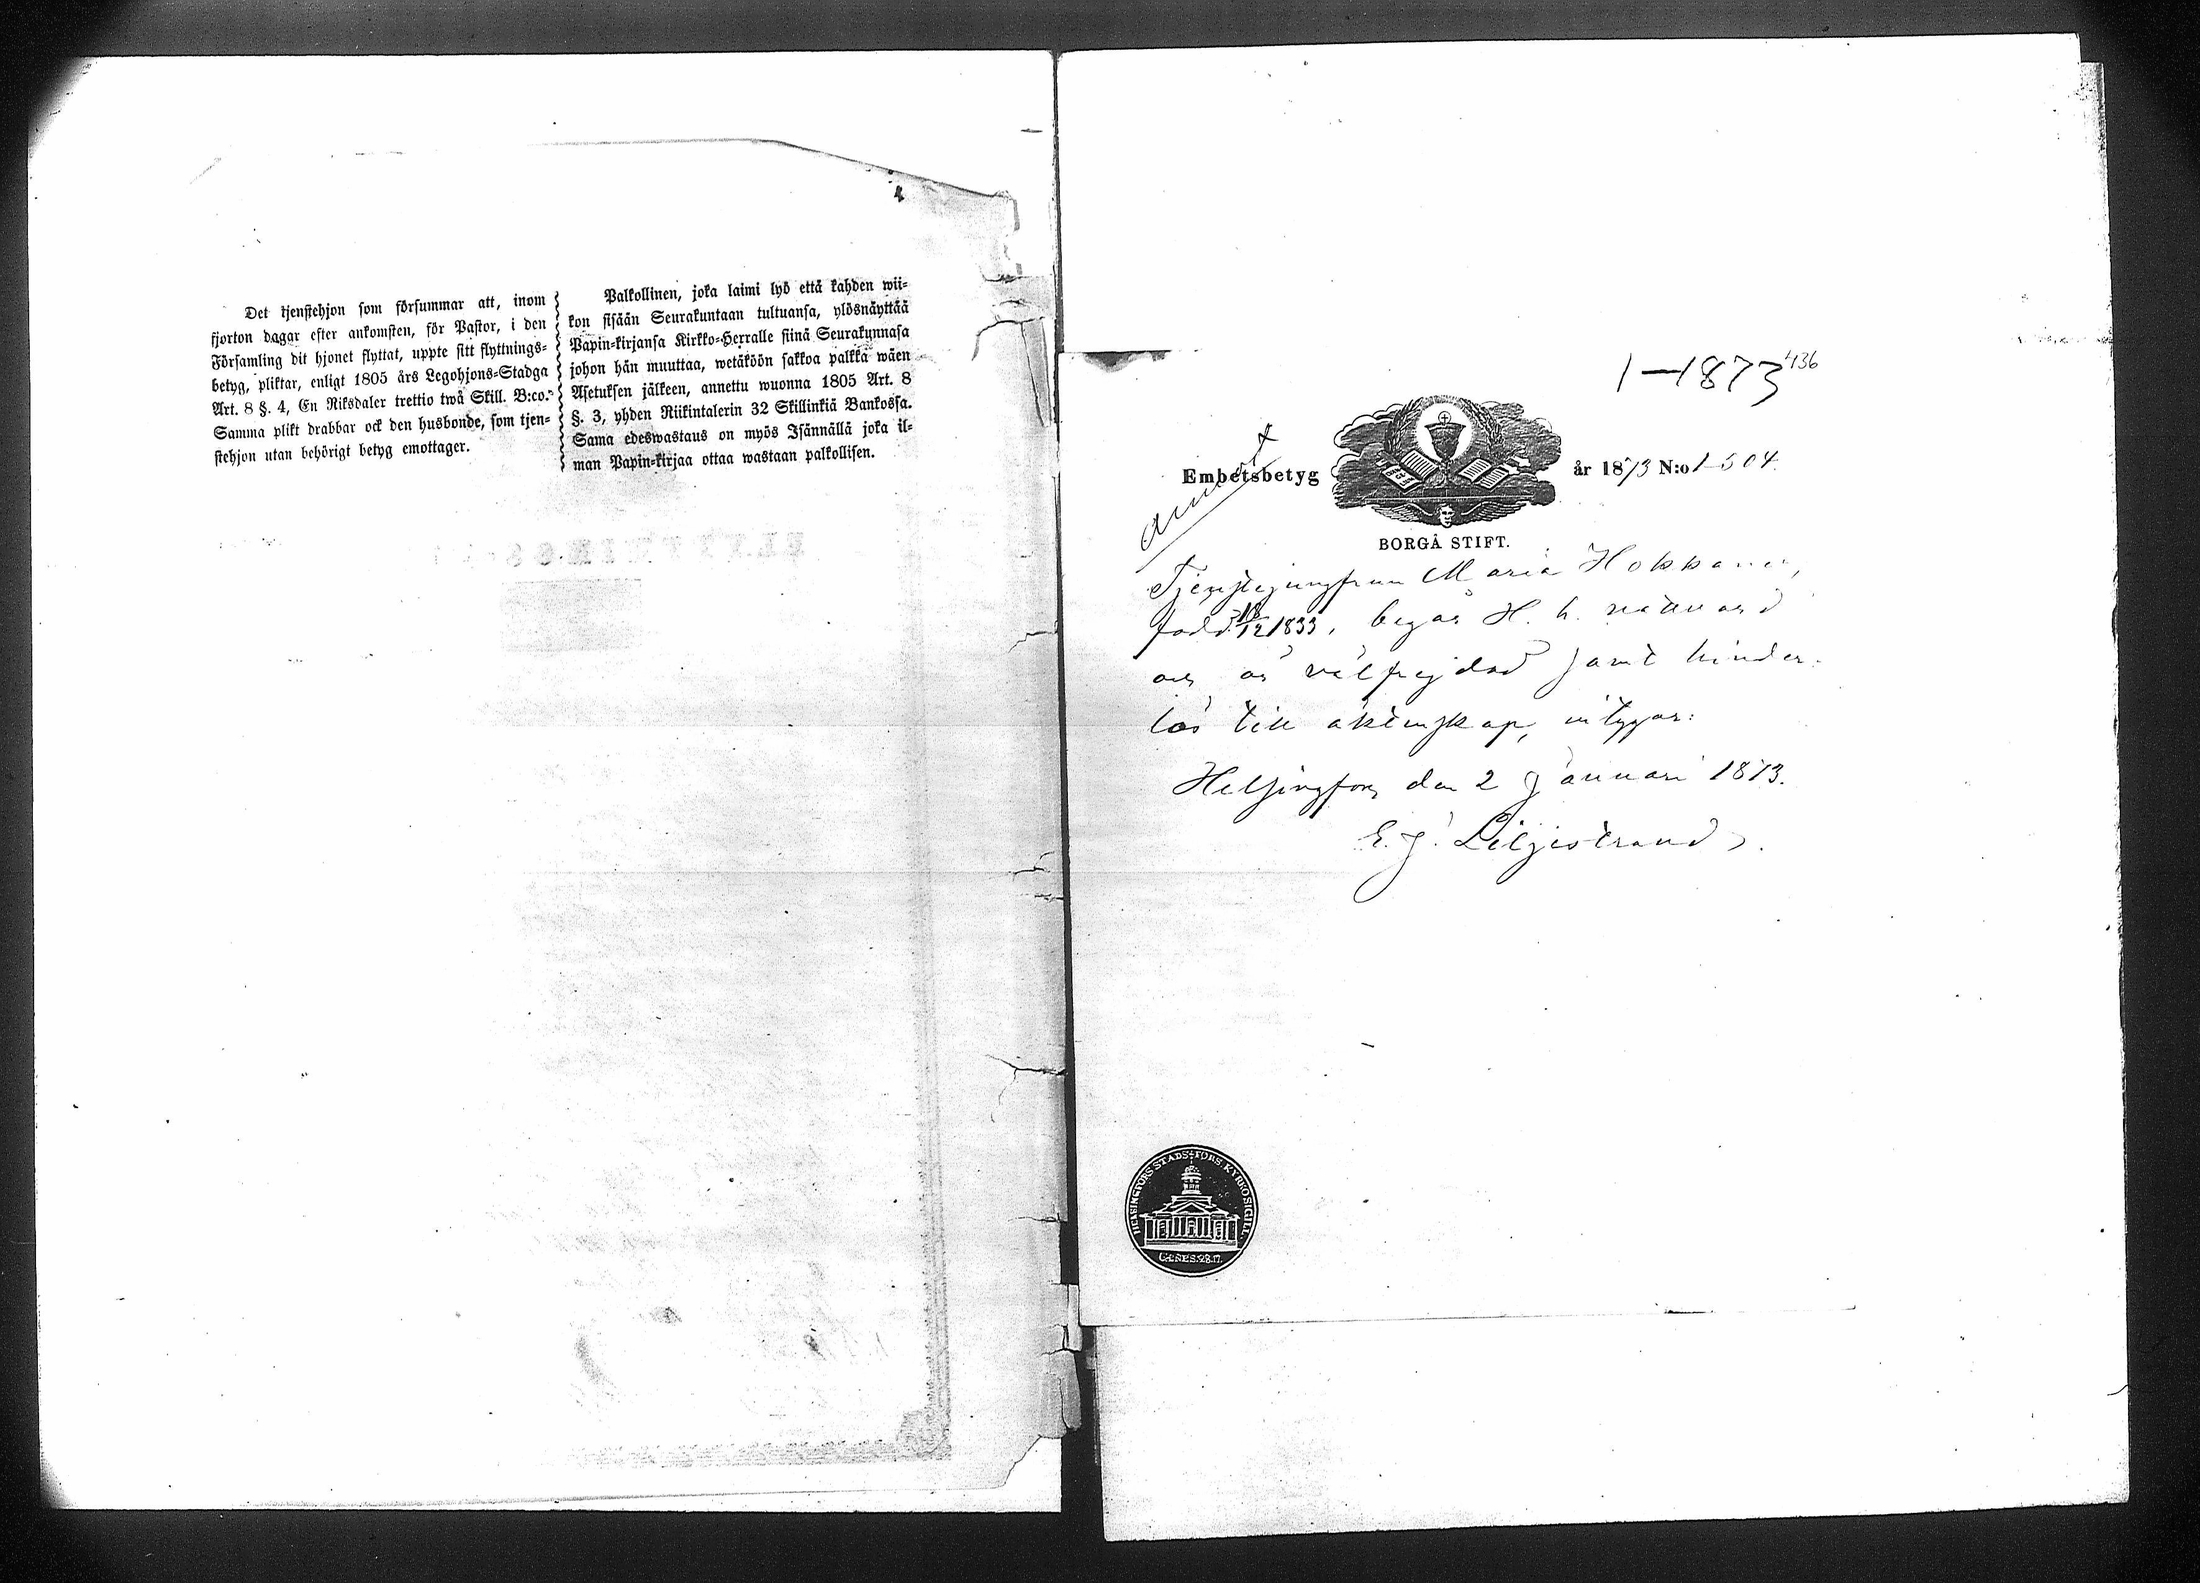 Det tjenstehjon som försummar att, inom
fjorton dagar efter ankomsten, för Pastor, i den
Församling dit hjonet flyttat, uppte sitt flyttnings=
betyg, pliktar, enligt 1805 års Legohjons=Stadga
Art. 8 §. 4, En Riksdaler trettio twå Skill. B:co.
Samma plikt drabbar ock den husbonde, som tjen=
stehjon utan behörigt betyg emottager.
Palkollinen, joka laimi lyö että kahden wii=
kon sisään Seurakuntaan tultuansa, ylösnäyttää
Papin=kirjansa Kirkko=Herralle siinä Seurakunnasa
johon hän muuttaa, wetäköön sakkoa palkka wäen
Asetuksen jälkeen, annettu wuonna 1805 Art. 8
§. 3, yhden Riikintalerin 32 Skillinkiä Bankossa.
Sama edeswastaus on myös Isännällä joka il=
man Papin=kirjaa ottaa wastaan palkollisen.
1—1873 436
Embetsbetyg år 1873 N:o 1504.
BORGÅ STIFT.
Tjenstejungfrun Maria Hokkanen,
född 18/12 1833, begår H. h. nattvard
och är välfrejdad samt hinder-
lös till äktenskap, intygar:
Helsingfors den 2 Januari 1873.
E. J. Liljestrand
HELSINGFORS STADS FÖRS. KYRKOSIGILL.
GENES. 28. 17.